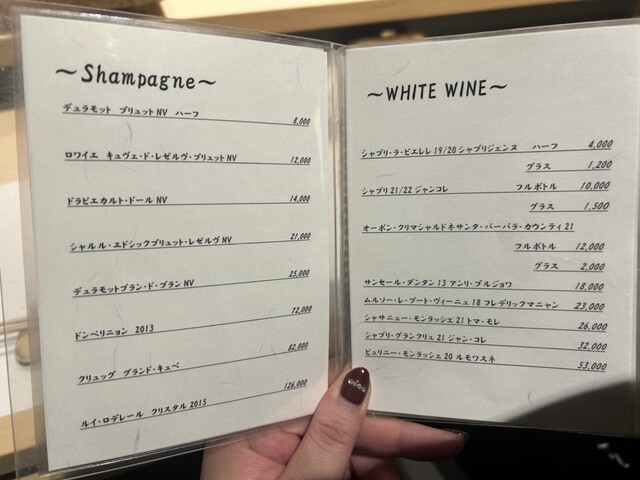 ～Shampagne～
デュラモット ブリュットNV ハーフ 8,000
ロワイエ キュヴェ・ド・レゼルヴ・ブリュットNV 12,000
ドラピエカルト・ドールNV 14,000
シャルル・エドシックブリュット・レゼルヴNV 21,000
デュラモットブラン・ド・ブランNV 25,000
ドンペリニョン 2013 72,000
クリュッグ グランド・キュベ 82,000
ルイ・ロデレール クリスタル 2015 126,000
～WHITE WINE～
シャブリ・ラ・ピエレレ 19/20 シャブリジェンヌ ハーフ 4,000
グラス 1,200
シャブリ 21/22 ジャンコレ フルボトル 10,000
グラス 1,500
オーボン・クリマシャルドネサンタ・バーバラ・カウンティ 21
フルボトル 12,000
グラス 2,000
サンセール・ダンタン 13 アンリ・ブルジョワ 18,000
ムルソー・レ・プート・ヴィーニュ 18 フレデリックマニャン 23,000
シャサニュー・モンラッシェ 21 トマ・モレ 26,000
シャブリ・グランクリュ 21 ジャン・コレ 32,000
ピュリニー・モンラッシェ 20 ルモワスネ 53,000